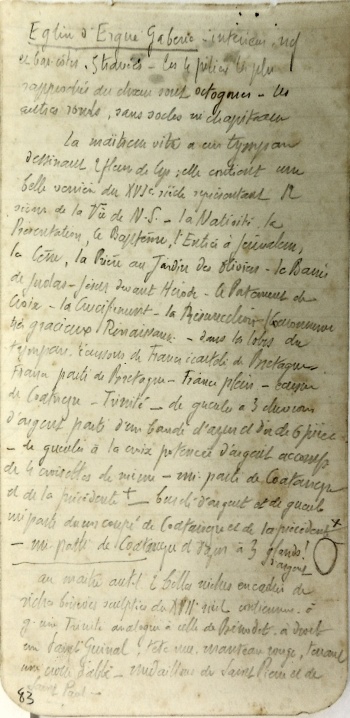 Eglise d'Ergué Gabéric - intérieur, nef
et bas-côtés, 5 travées - les 4 piliers les plus
rapprochés du chœur sont octogones - les
autres ronds, sans socles ni chapiteaux
La maîtresse vitre a un tympan
dessinant 3 fleurs de lys, elle contient une
belle verrière du XVIe siècle représentant 12
scènes de la Vie de N.S. - la Nativité, la
Présentation, le Baptême, l'Entrée à Jérusalem,
la Cène, la Prière au Jardin des oliviers - le Baiser
de Judas - Jésus devant Hérode - le Portement de
Croix - la Crucifiement - la Résurrection - Couronnement
très gracieux Renaissance - dans les lobes du
tympan, écussons de France écartelé de Bretagne -
France parti de Bretagne - France plein - écusson
de Coatanezre - Trinité - de gueule à 3 chevrons
d'argent parti d'un bandé d'azur et d'or de 6 pièces
- de gueule à la croix potencée d'argent accomp.
de 4 croisettes de même - mi-parti de Coatanezre
et de la précédente + burelé d'argent et de gueule
mi parti d'un coupé de Coatanezre et de la précédente x
- mi-parti de Coatanezre et d'azur à 3 glands
d'argent
au maître autel 2 belles niches encadrées de
riches boiseries sculptées du XVIIe siècle contiennent à
g. une Trinité analogue à celle de Bénodet - à droite
un Saint Guinal, tête nue, manteau rouge, tenant
une crosse d'abbé - médaillons de Saint Pierre et de
Saint Paul -
83